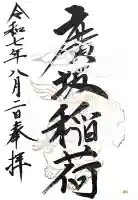 廣坂稲荷
令和七年八月二日奉拝